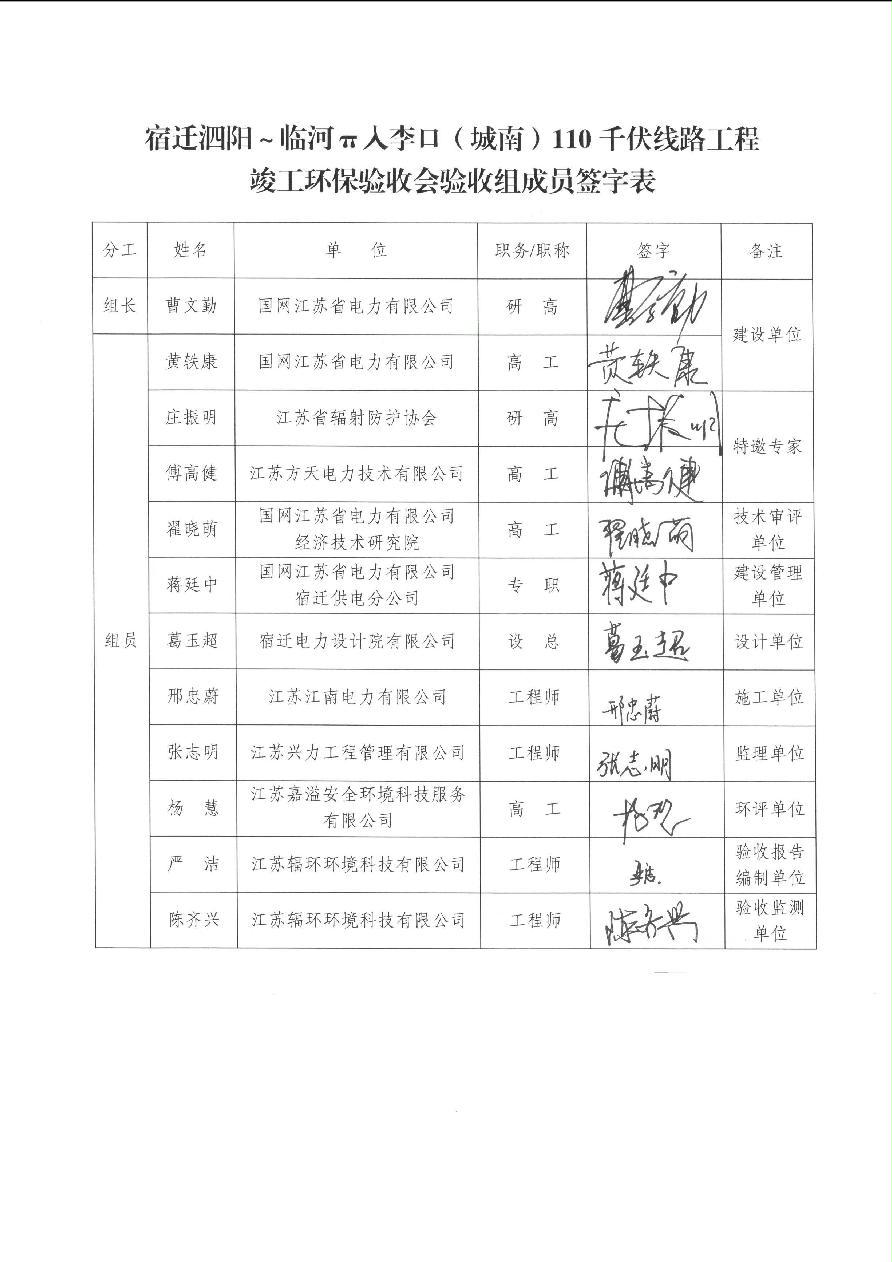 宿迁泗阳~临河π入李口（城南）110千伏线路工程
竣工环保验收会验收组成员签字表
分工 姓名 单 位 职务/职称 签字 备注
组长 曹文勤 国网江苏省电力有限公司 研 高 曹文勤 建设单位
组员 黄轶康 国网江苏省电力有限公司 高 工 黄轶康
庄振明 江苏省辐射防护协会 研 高 庄振明 特邀专家
傅高健 江苏方天电力技术有限公司 高 工 傅高健
翟晓萌 国网江苏省电力有限公司 高 工 翟晓萌 技术审评
经济技术研究院 单位
蒋廷中 国网江苏省电力有限公司 专 职 蒋廷中 建设管理
宿迁供电分公司 单位
葛玉超 宿迁电力设计院有限公司 设 总 葛玉超 设计单位
邢忠蔚 江苏江南电力有限公司 工程师 邢忠蔚 施工单位
张志明 江苏兴力工程管理有限公司 工程师 张志明 监理单位
杨 慧 江苏嘉溢安全环境科技服务 高 工 杨慧 环评单位
有限公司
严 洁 江苏辐环环境科技有限公司 工程师 严洁 验收报告
编制单位
陈齐兴 江苏辐环环境科技有限公司 工程师 陈齐兴 验收监测
单位